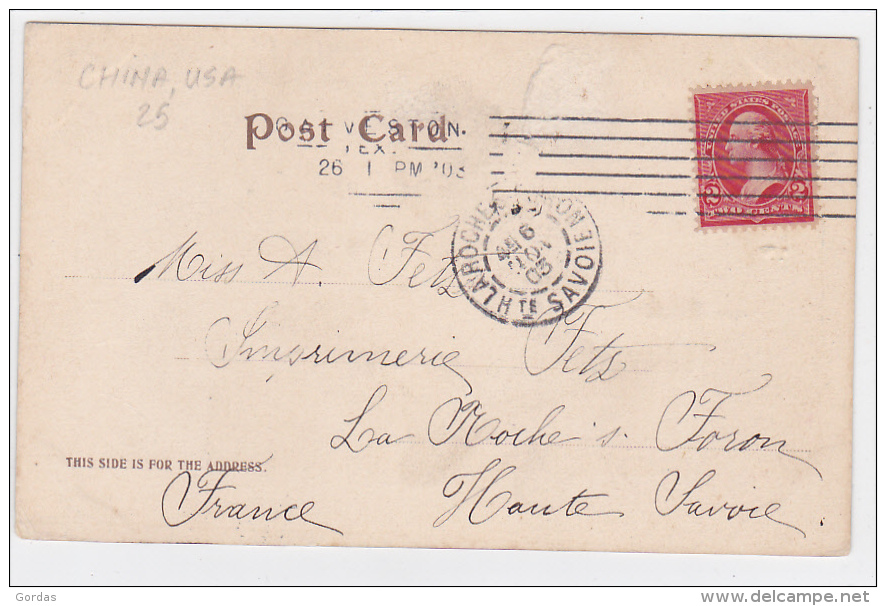 CHINA, USA
25
Post Card
GALVESTON.
TEX.
26 1 PM '03
UNITED STATES POSTAGE
2 2
TWO CENTS
LA ROCHE SUR FORON
HTE SAVOIE
6
03
Miss A. Fetz
Imprimerie Fetz
La Roche s. Foron
THIS SIDE IS FOR THE ADDRESS.
France Haute Savoie
Gordas
www.delcampe.net